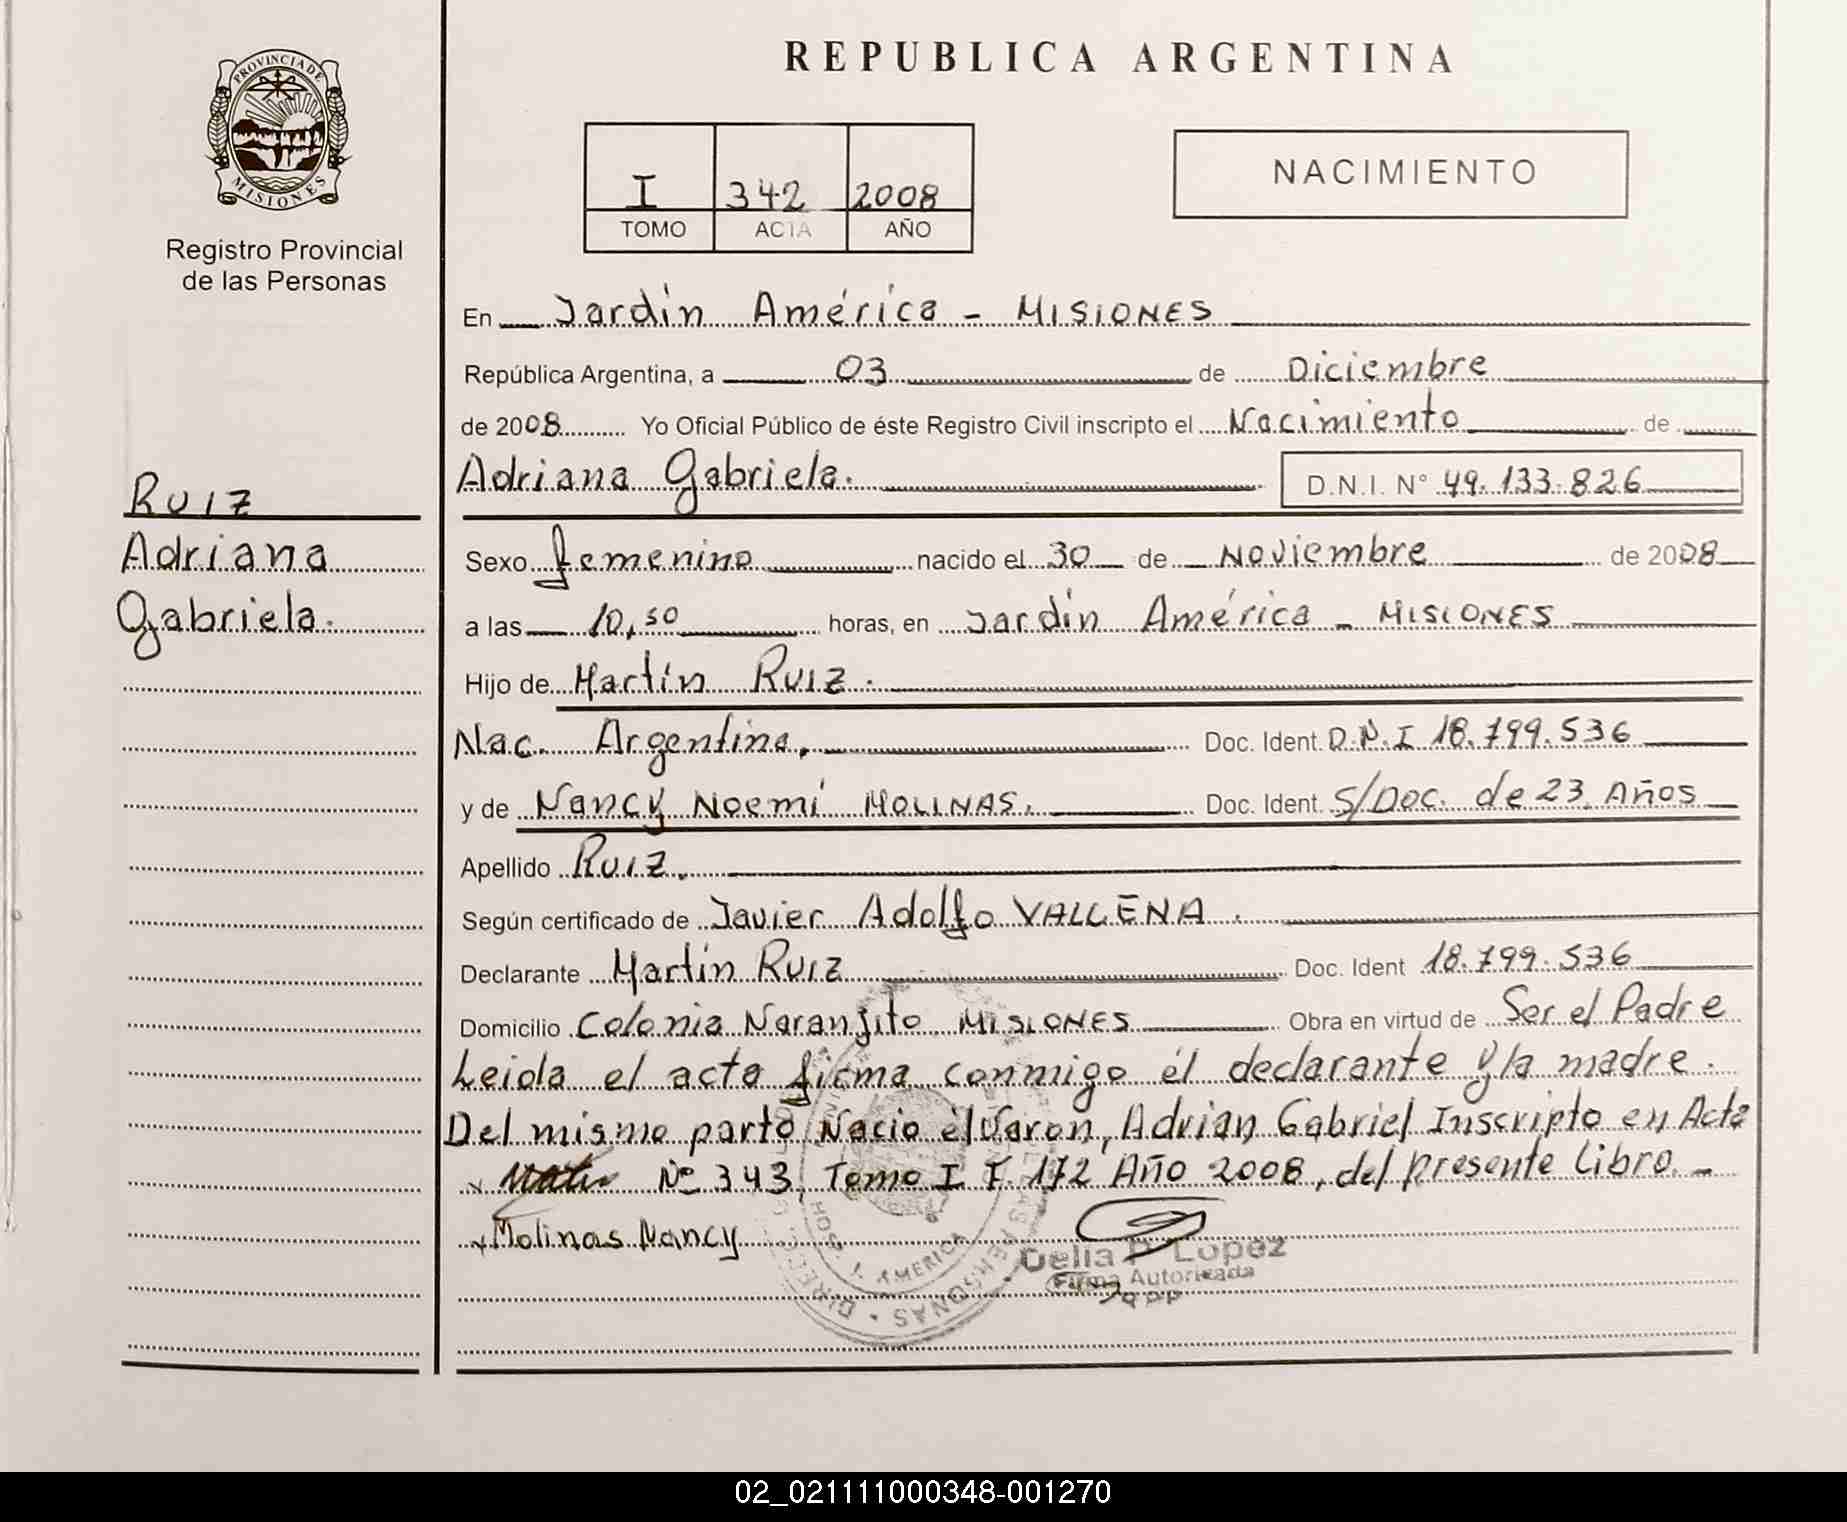 REPUBLICA ARGENTINA
PROVINCIA DE
MISIONES
Registro Provincial
de las Personas
I 342 2008
TOMO ACTA AÑO
NACIMIENTO
En Jardín América - MISIONES
República Argentina, a 03 de Diciembre
de 2008 Yo Oficial Público de éste Registro Civil inscripto el Nacimiento de
Adriana Gabriela. D.N.I. N° 49.133.826
Ruiz
Adriana
Gabriela.
Sexo femenino nacido el 30 de Noviembre de 2008
a las 10,50 horas, en Jardín América - MISIONES
Hijo de Martín Ruiz.
Nac. Argentina, Doc. Ident. D.N.I 18.799.536
y de Nancy Noemí MOLINAS. Doc. Ident. S/Doc. de 23 Años
Apellido Ruiz.
Según certificado de Javier Adolfo VALLENA.
Declarante Martín Ruiz Doc. Ident 18.799.536
Domicilio Colonia Naranjito MISIONES Obra en virtud de Ser el Padre
Leida el acta firma conmigo él declarante y la madre.
Del mismo parto Nacio el Varon, Adrian Gabriel Inscripto en Acta
Nº 343, Tomo I F. 172 Año 2008, del presente libro. -
x Molinas Nancy
J. AMERICA
Delia P. Lopez
Firma Autorizada
02_021111000348-001270